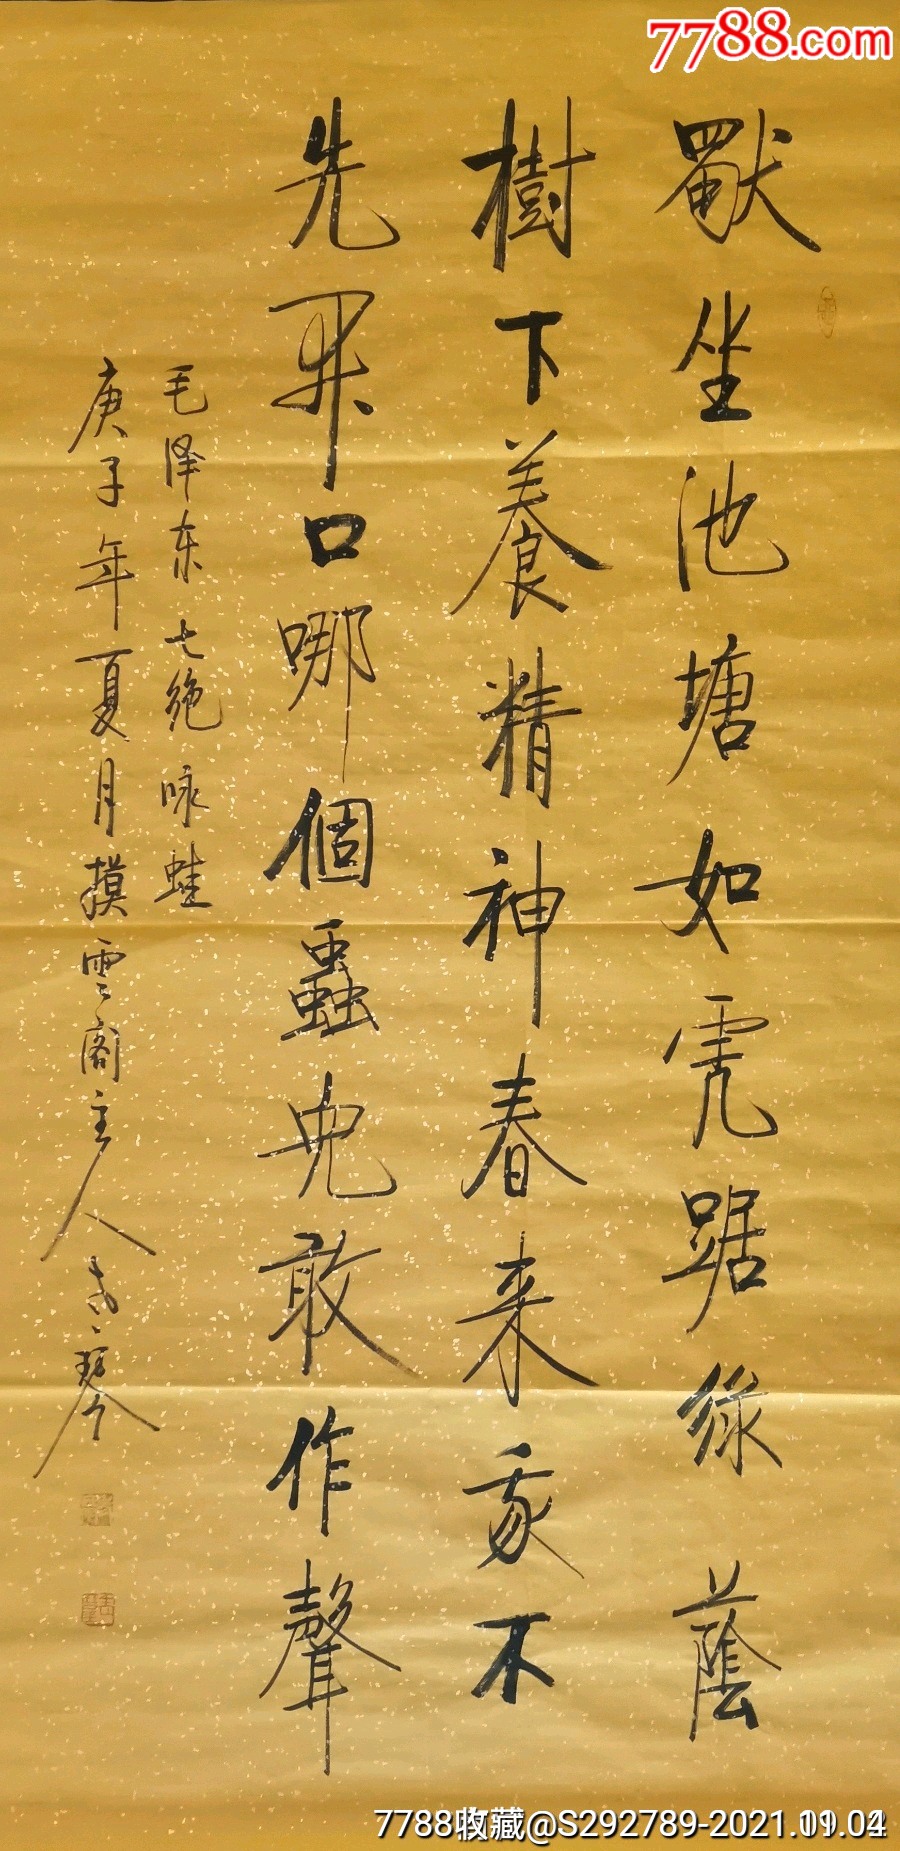 7788.com
獨坐池塘如虎踞綠蔭
樹下養精神春来我不
先開口哪個蟲兒敢作聲
毛泽东七绝咏蛙
庚子年夏月摸雲阁主人琴
7788收藏@S292789-2021.